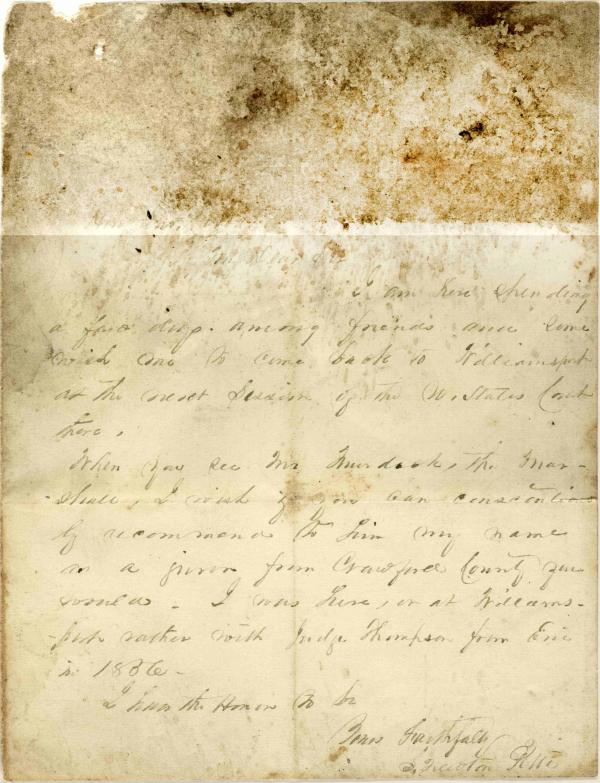 My Dear Sir
I am here spending
a few days among friends and some
wish me to come back to Williamsport
at the next Session of the U. States Court
there.
When you see Mr Murdock, the Mar-
-shall, I wish if you can conscientious
ly recommend to him my name
as a juror from Crawford County you
would - I was here, or at Williams-
-port rather with Judge Thompson from Erie
in 1856 -
I have the Honor to be
Yours Faithfully
Newton